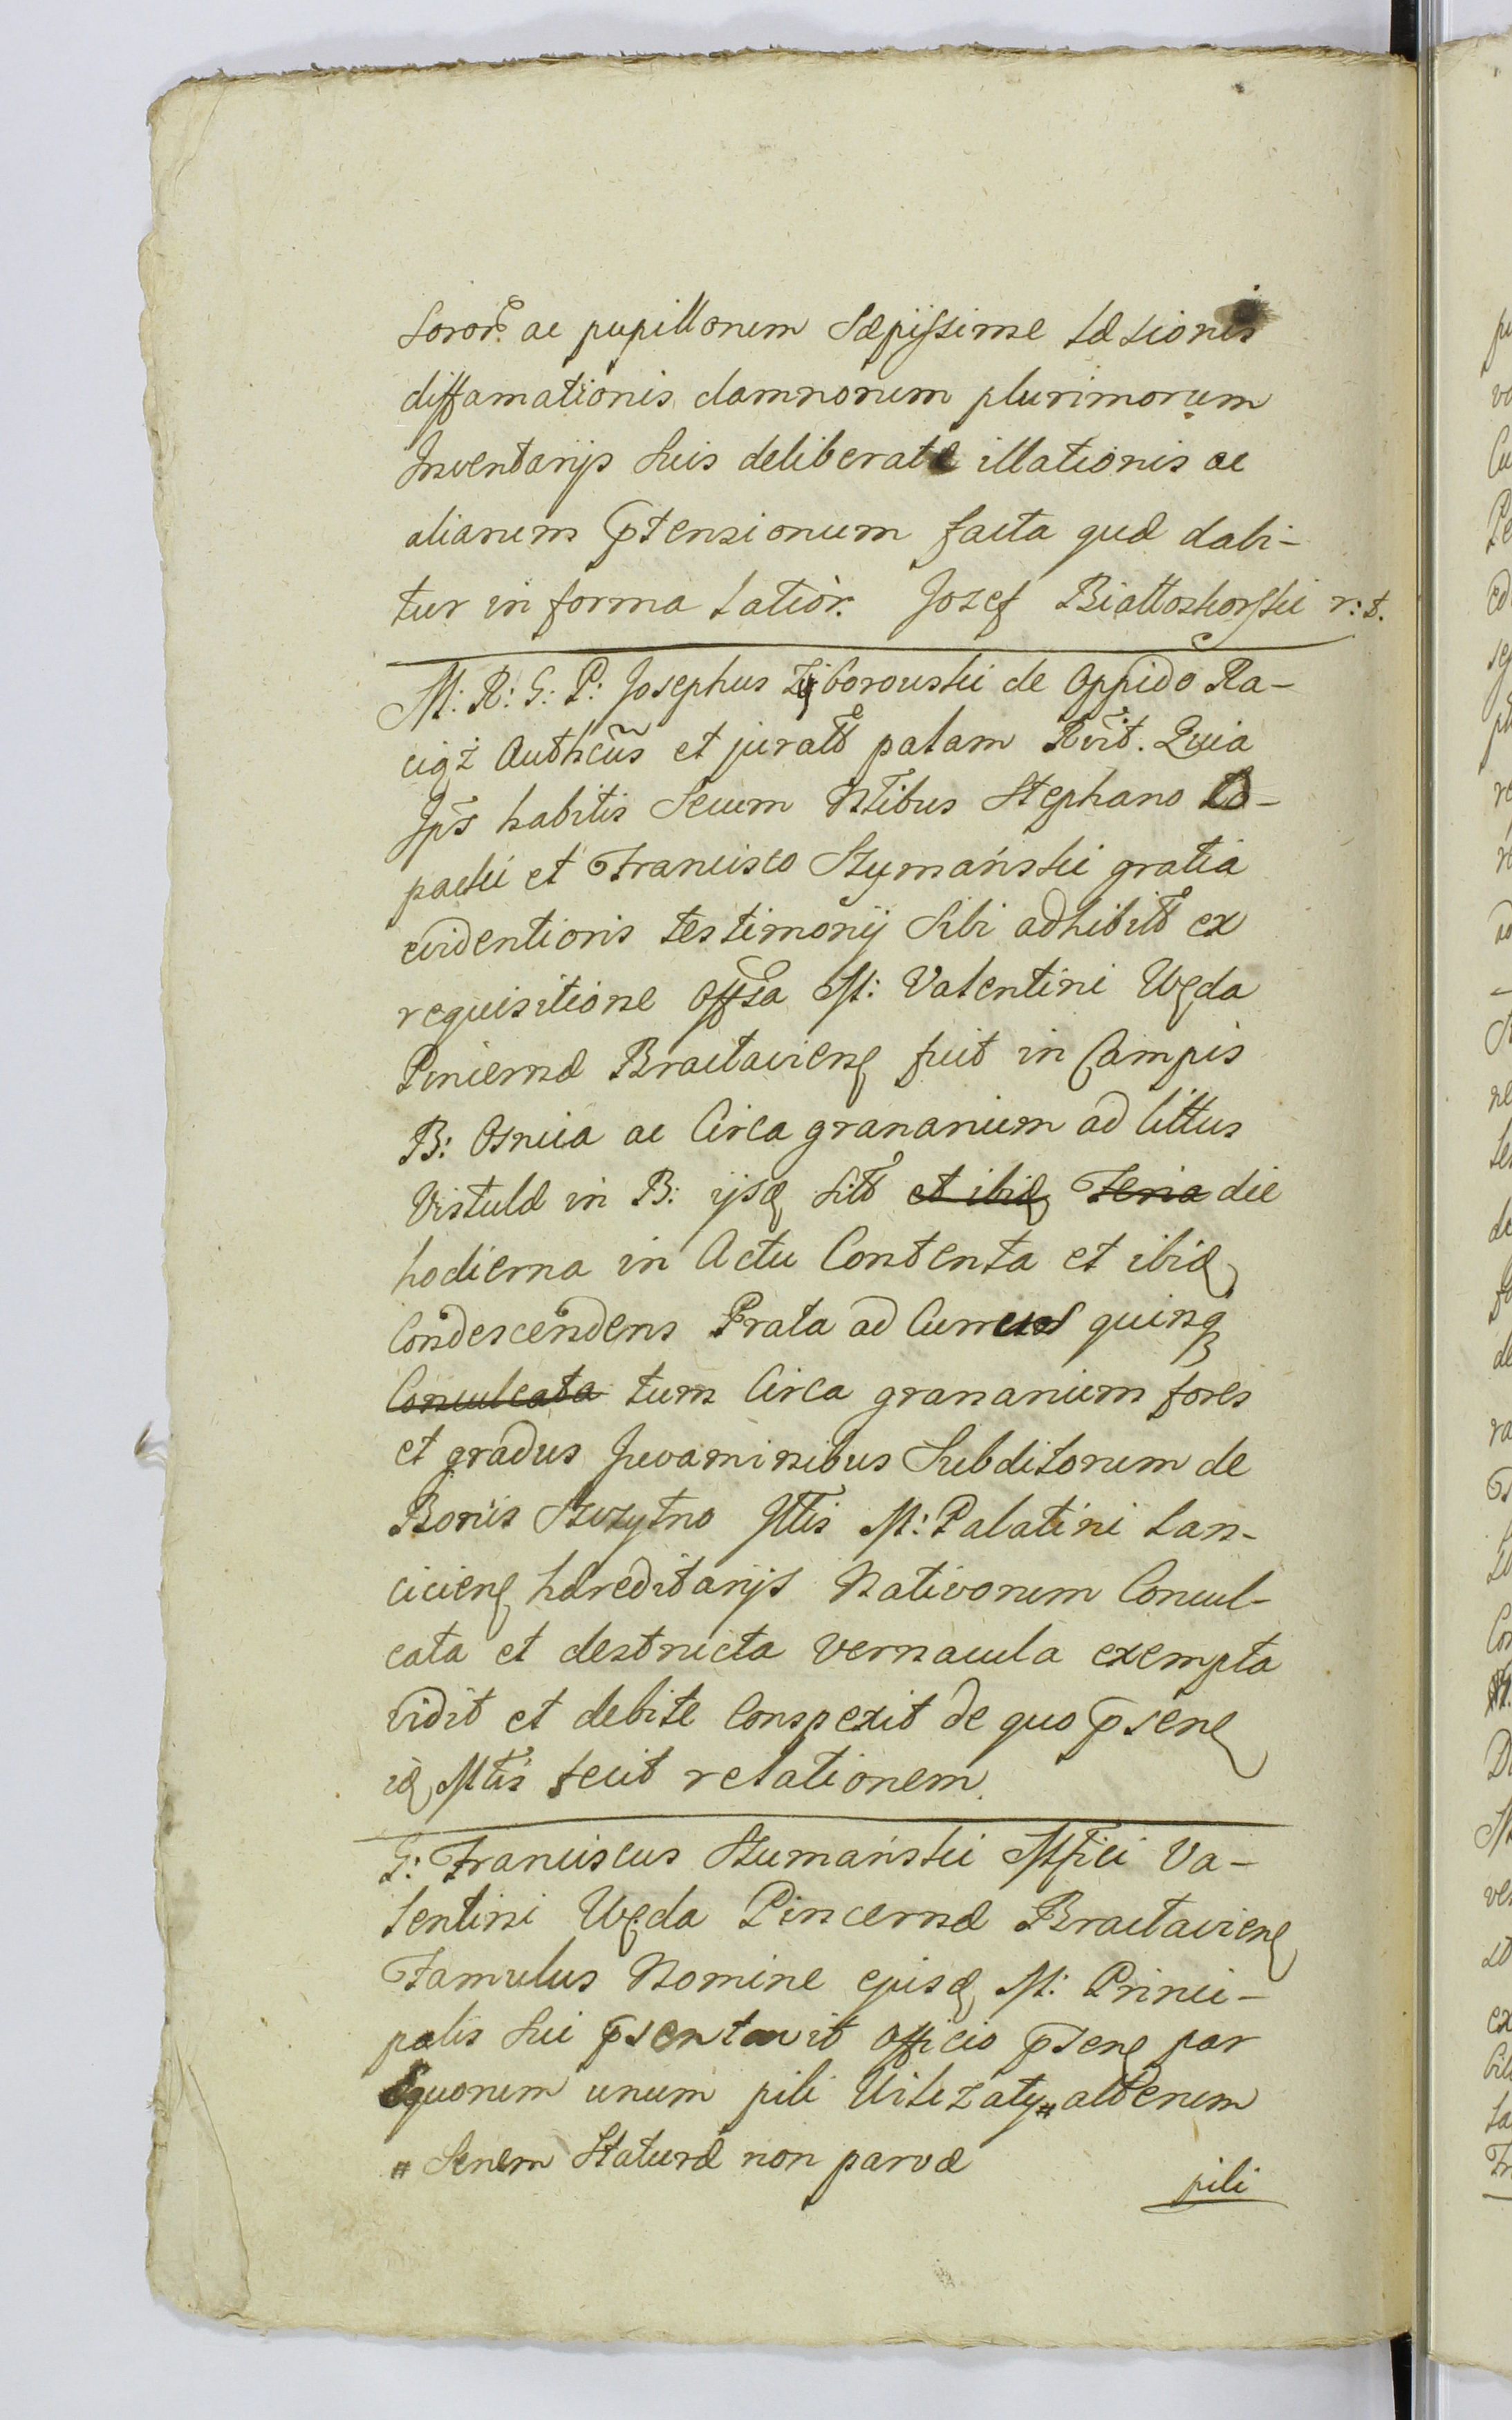 Soror. ac pupillorum Sæpissime Læsionis
diffamationis damnorum plurimorum
Inventarijs Suis deliberate illationis ac
aliarum ptensionum facta quæ dabi-
tur in forma Latior. Jozef Białłoskorski r: t.
M: R: G: P: Josephus Zyborowski de Oppido Ra-
ciąż Authcus et juratt palam Rvit. Quia
Ips habitis Secum Ntibus Stephano Ło-
packi et Francisco Szymański gratia
evidentioris testimonij Sibi adhibitt ex
requisitione Offsa M: Valentini Węda
Pincernæ Bractaviens fuit in Campis
B: Osnica ac Circa granarium ad littus
Vistulæ in B: ijsd Sitt et ibid Feria die
hodierna in Actu Contenta et ibid
Condescendens Prata ad Currus quinq
Conculcata tum Circa granarium fores
et gradus Juvaminibus Subditorum de
Bonis Szczytno Jllis M: Palatini Lan-
ciciens hæreditarijs Nativorum Concul-
cata et destructa vernacula exempta
vidit et debite Conspexit de quo psens
id Mtis fecit relationem.
G: Franciscus Szumański Mfici Va-
lentini Węda Pincernæ Bractaviens
Famulus Nomine ejusd M: Princi-
palis Sui psentavit Officio psens par
Equorum unum pili Wilczaty # alterum
# Senem Staturæ non parvæ
pili